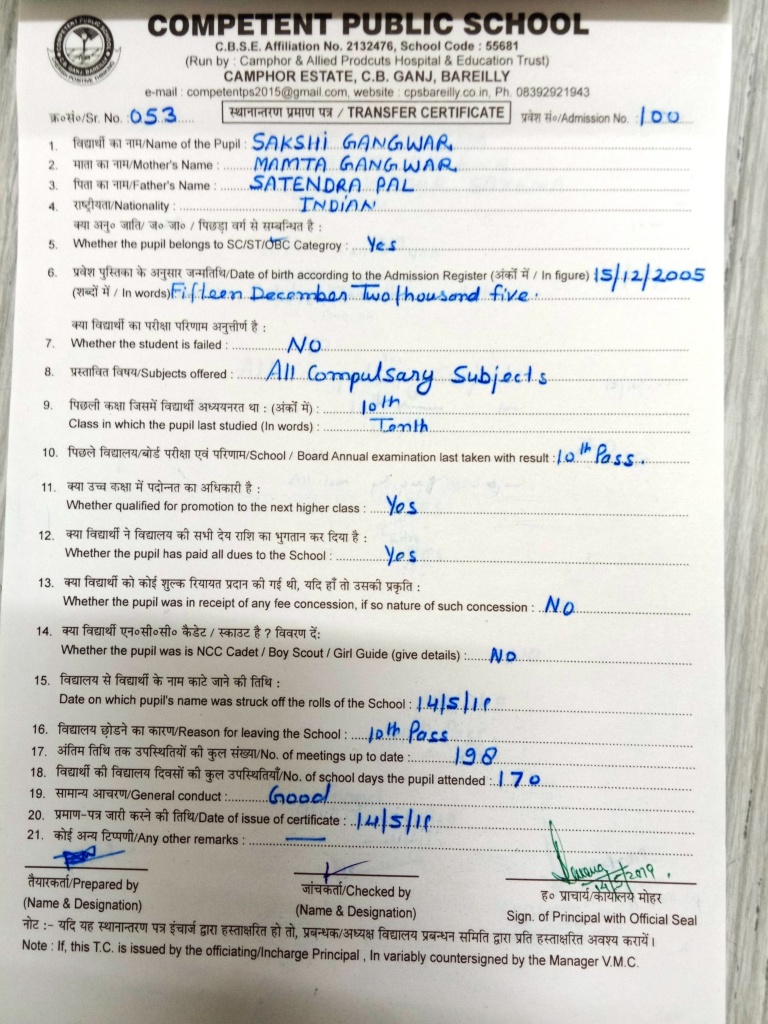 COMPETENT PUBLIC SCHOOL
C.B.S.E. Affiliation No. 2132476, School Code : 55681
(Run by : Camphor & Allied Prodcuts Hospital & Education Trust)
CAMPHOR ESTATE, C.B. GANJ, BAREILLY
e-mail : competentps2015@gmail.com, website : cpsbareilly.co.in, Ph. 08392921943
क्र०सं०/Sr. No. 053 स्थानान्तरण प्रमाण पत्र / TRANSFER CERTIFICATE प्रवेश सं०/Admission No. 100
1. विद्यार्थी का नाम/Name of the Pupil : SAKSHI GANGWAR
2. माता का नाम/Mother's Name : MAMTA GANGWAR
3. पिता का नाम/Father's Name : SATENDRA PAL
4. राष्ट्रीयता/Nationality : INDIAN
क्या अनु० जाति/ ज० जा० / पिछड़ा वर्ग से सम्बन्धित है :
5. Whether the pupil belongs to SC/ST/OBC Categroy : Yes
6. प्रवेश पुस्तिका के अनुसार जन्मतिथि/Date of birth according to the Admission Register (अंकों में / In figure) 15/12/2005
(शब्दों में / In words) Fifteen December Two thousand five.
क्या विद्यार्थी का परीक्षा परिणाम अनुत्तीर्ण है :
7. Whether the student is failed : NO
8. प्रस्तावित विषय/Subjects offered : All Compulsary Subjects
9. पिछली कक्षा जिसमें विद्यार्थी अध्ययनरत था : (अंकों में) : 10th
Class in which the pupil last studied (In words) : Tenth
10. पिछले विद्यालय/बोर्ड परीक्षा एवं परिणाम/School / Board Annual examination last taken with result : 10th Pass.
11. क्या उच्च कक्षा में पदोन्नत का अधिकारी है :
Whether qualified for promotion to the next higher class : Yes
12. क्या विद्यार्थी ने विद्यालय की सभी देय राशि का भुगतान कर दिया है :
Whether the pupil has paid all dues to the School : Yes
13. क्या विद्यार्थी को कोई शुल्क रियायत प्रदान की गई थी, यदि हाँ तो उसकी प्रकृति :
Whether the pupil was in receipt of any fee concession, if so nature of such concession : NO
14. क्या विद्यार्थी एन०सी०सी० कैडेट / स्काउट है ? विवरण दें:
Whether the pupil was is NCC Cadet / Boy Scout / Girl Guide (give details) : No
15. विद्यालय से विद्यार्थी के नाम काटे जाने की तिथि :
Date on which pupil's name was struck off the rolls of the School : 14/5/19
16. विद्यालय छोडने का कारण/Reason for leaving the School : 10th Pass
17. अंतिम तिथि तक उपस्थितियों की कुल संख्या/No. of meetings up to date : 198
18. विद्यार्थी की विद्यालय दिवसों की कुल उपस्थितियाँ/No. of school days the pupil attended : 170
19. सामान्य आचरण/General conduct : Good
20. प्रमाण-पत्र जारी करने की तिथि/Date of issue of certificate : 14/5/19
21. कोई अन्य टिप्पणी/Any other remarks :
14/5/2019
तैयारकर्ता/Prepared by जांचकर्ता/Checked by ह० प्राचार्य/कार्यालय मोहर
(Name & Designation) (Name & Designation) Sign. of Principal with Official Seal
नोट :- यदि यह स्थानान्तरण पत्र इंचार्ज द्वारा हस्ताक्षरित हो तो, प्रबन्धक/अध्यक्ष विद्यालय प्रबन्धन समिति द्वारा प्रति हस्ताक्षरित अवश्य करायें।
Note : If, this T.C. is issued by the officiating/Incharge Principal , In variably countersigned by the Manager V.M.C.